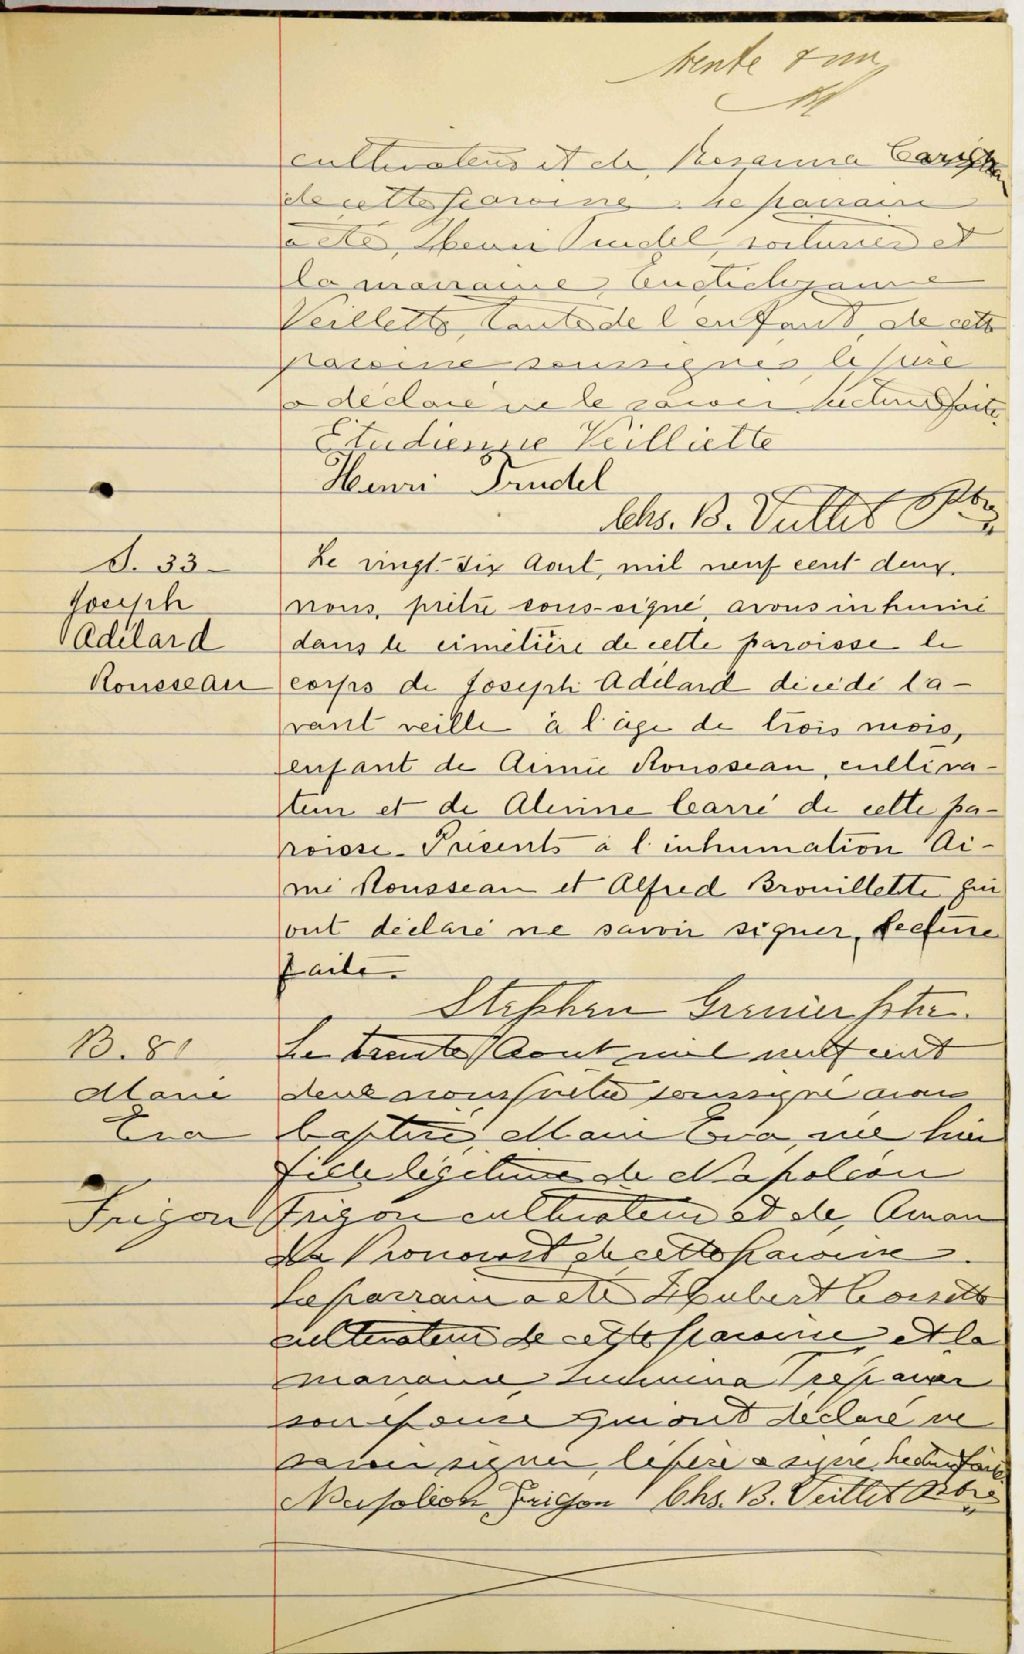 trente & un
cultivateur et de Rosanna Carignan
de cette paroisse. Le parrain
a été, Henri Trudel, voiturier et
la marraine,
Veillette, tante de l'enfant, de cette
paroisse soussignés, le père
a déclaré ne le savoir Lecture faite.
Etudienne Veilliette
Henri Trudel
Chs. B. Veillet Ptre
S. 33 -
Joseph
Adélard
Rousseau
Le vingt-six Aout, mil neuf cent deux.
nous, prêtre sous-signé, avons inhumé
dans le cimetière de cette paroisse le
corps de Joseph Adélard décédé l'a-
vant veille à l'âge de trois mois,
enfant de Aimé Rousseau, cultiva-
teur et de Alerine Carré de cette pa-
roisse. Présents à l'inhumation Ai-
mé Rousseau et Alfred Brouillette qui
ont déclaré ne savoir signer, lecture
faite.
Stephen Grenier ptre.
B. 81
Marie
Eva
Frigon
Le trente Aout mil neuf cent
deux nous prêtre soussigné avons
baptisé, Marie Eva, née hier
fille légitime de Napoléon
Frigon cultivateur et de, Aman
da Pronovost de cette paroisse.
Le parrain a été Hubert Cossette
cultivateur de cette paroisse et la
marraine, Trépanier
son épouse qui ont déclaré ne
savoir signer, le père a signé. Lecture faite.
Napoléon Frigon Chs. B. Veillet Ptre